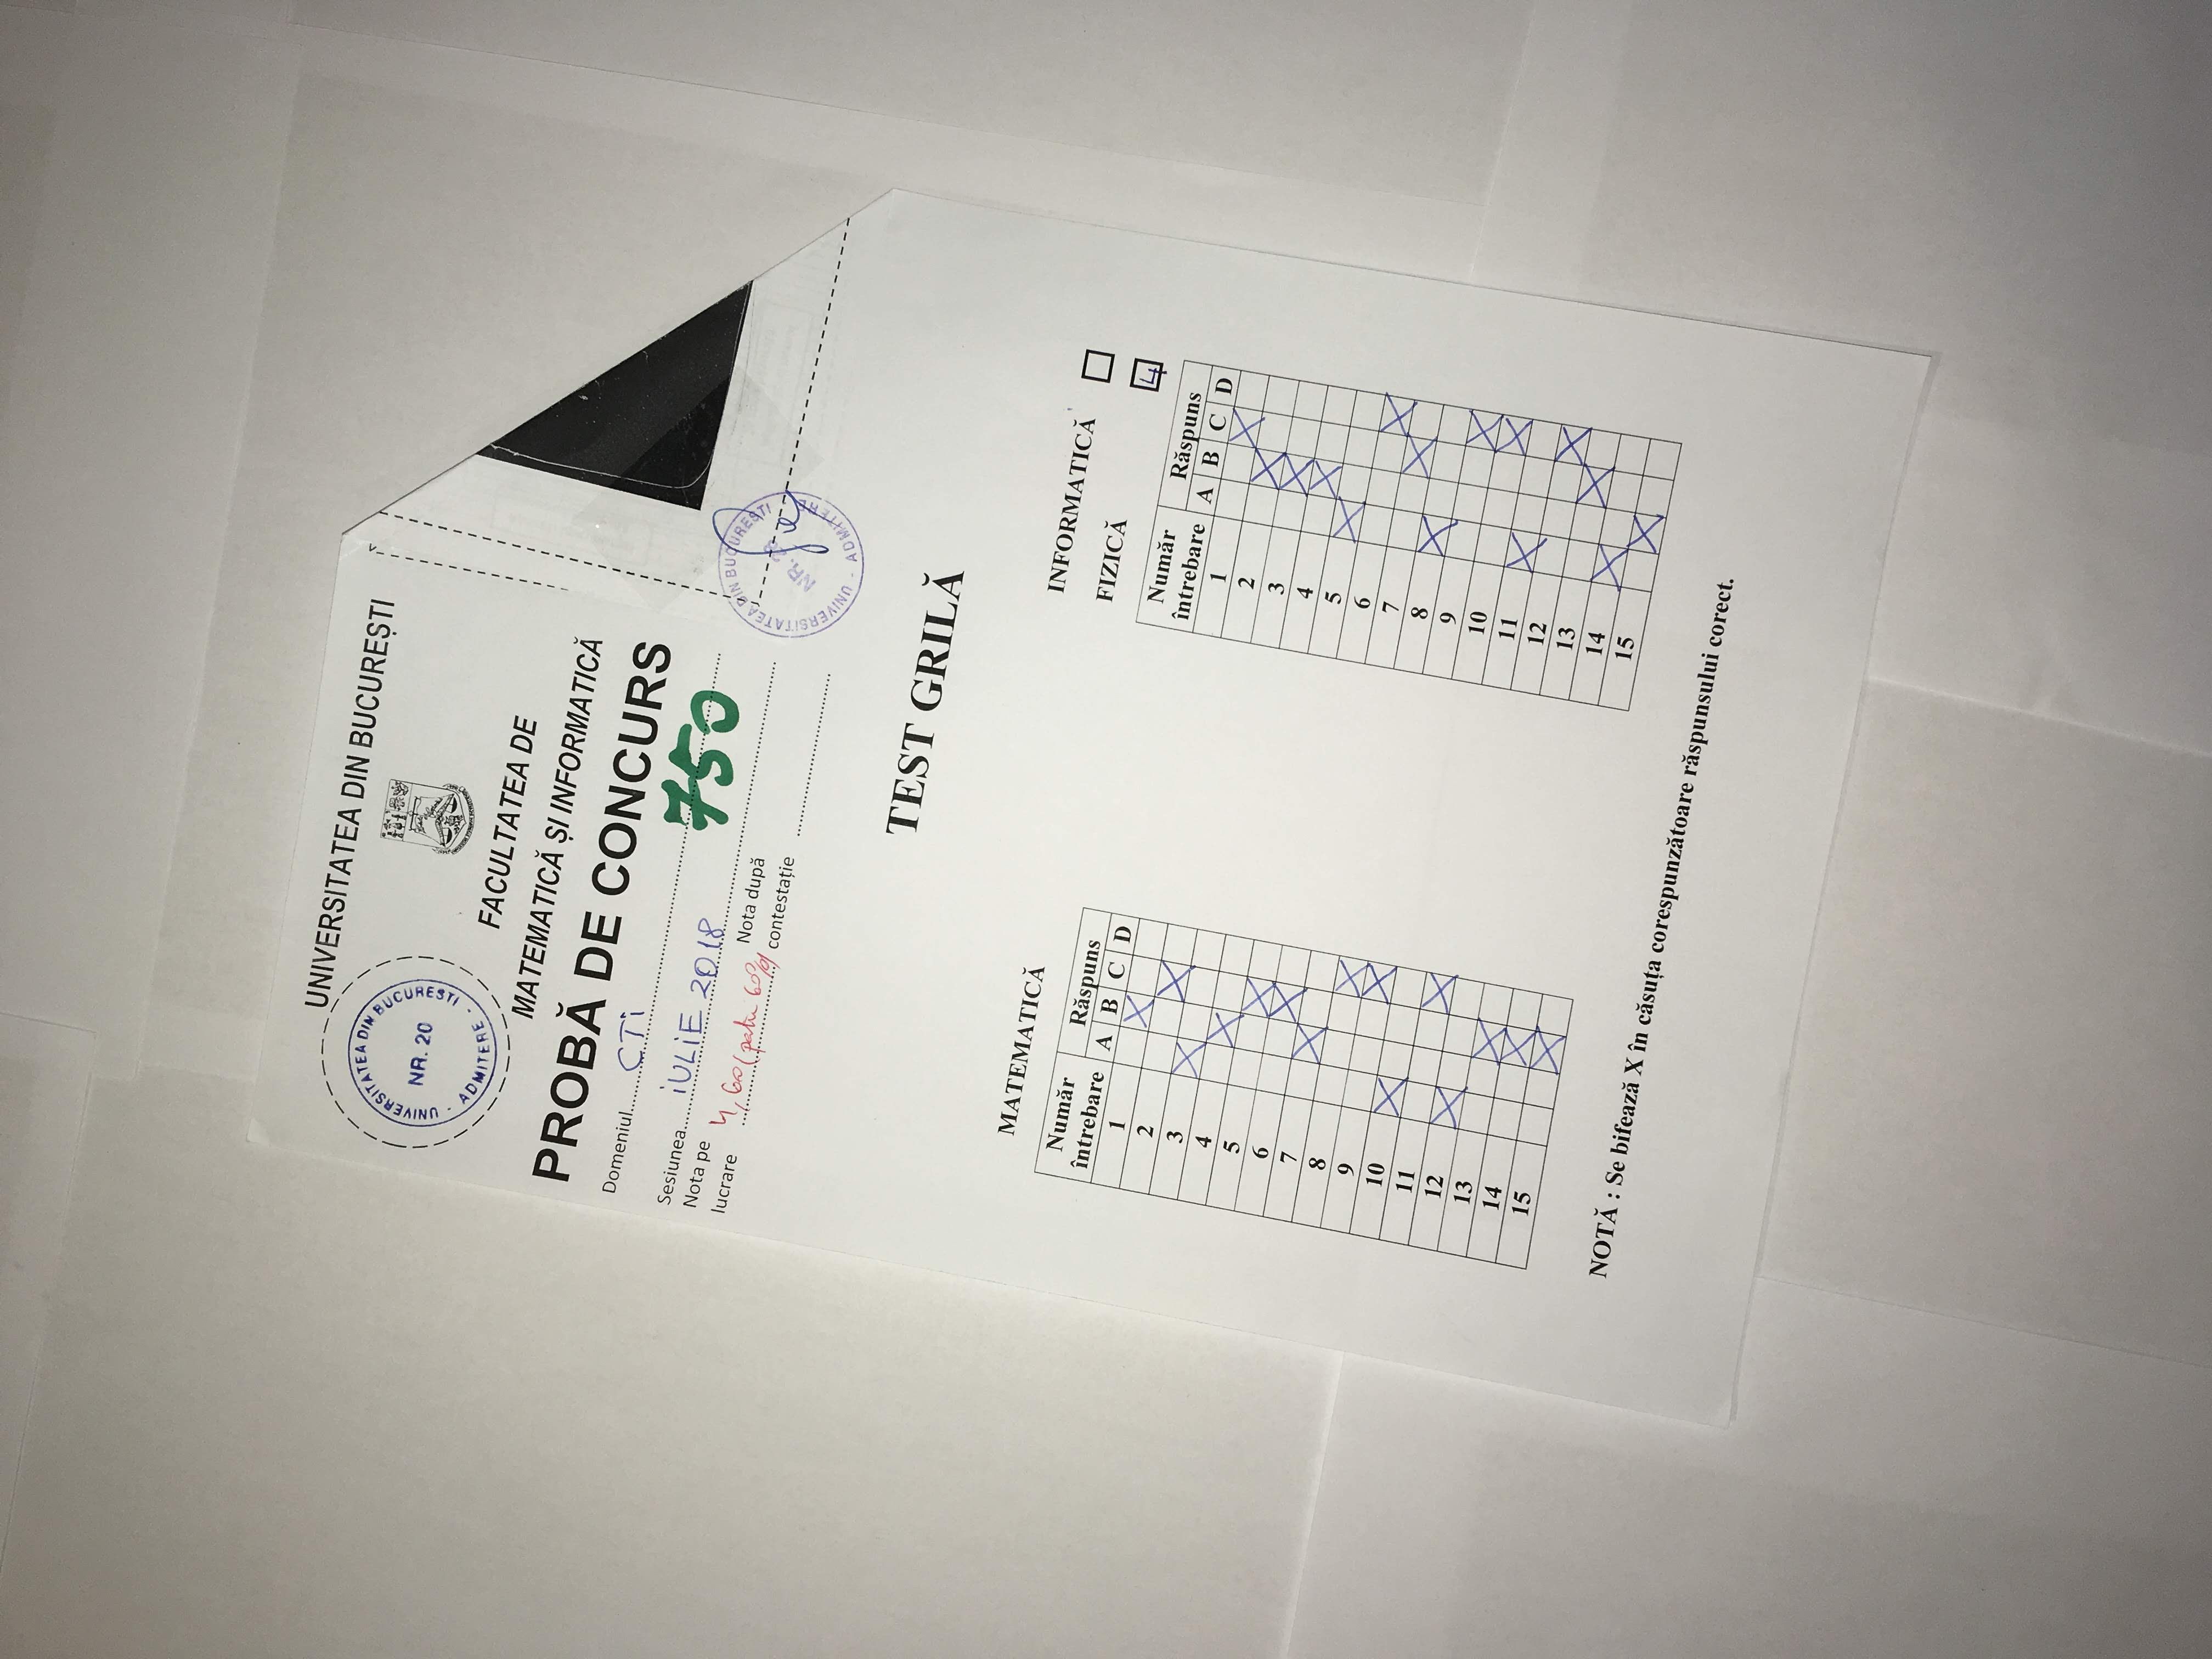 UNIVERSITATEA DIN BUCUREȘTI
UNIVERSITATEA DIN BUCUREȘTI - ADMITERE -
NR. 20
FACULTATEA DE
MATEMATICĂ ȘI INFORMATICĂ
PROBĂ DE CONCURS
Domeniul CTi
750
Sesiunea iULiE 2018
Nota pe lucrare 4,60 (patru 60%)
Nota după contestație
UNIVERSITATEA DIN BUCUREȘTI - ADMITERE
NR.
TEST GRILĂ
MATEMATICĂ
Număr întrebare Răspuns
A B C D
1 X
2 X
3 X
4 X
5 X
6 X
7 X
8 X
9 X
10 X
11 X
12 X
13 X
14 X
15 X
INFORMATICĂ
FIZICĂ 4
Număr întrebare Răspuns
A B C D
1 X
2 X
3 X
4 X
5 X
6 X
7 X
8 X
9 X
10 X
11 X
12 X
13 X
14 X
15 X
NOTĂ : Se bifează X în căsuța corespunzătoare răspunsului corect.